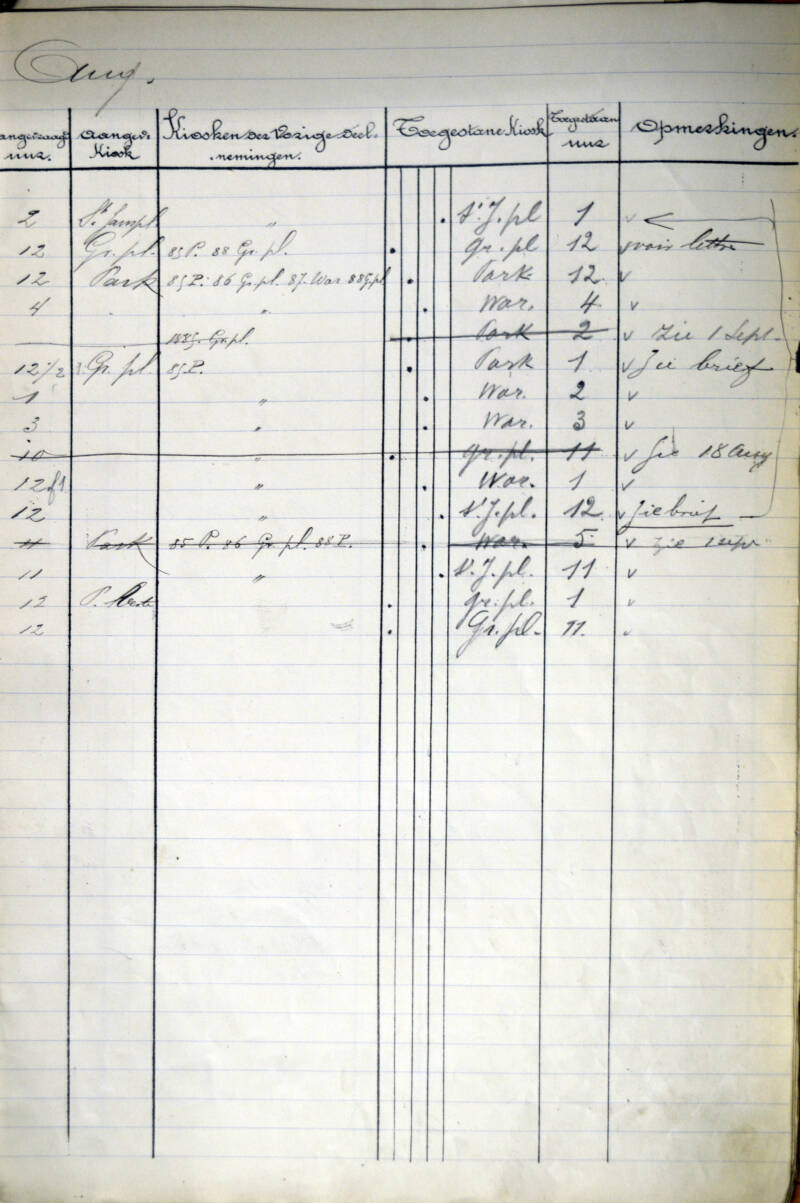 Aug.
aangevraagd uur. aangev. Kiosk Kiosken der vorige deelnemingen. Toegestane Kiosk Toegestaan uur Opmerkingen.
2 St Jampl " St J. pl 1 v
12 Gr. pl. 85 P. 88 Gr. pl. gr. pl 12 v voir lettre
12 Park 85 P. 86 Gr. pl. 87. War 88 G. pl Park 12 v
4 " War. 4 v
1885. Gr. pl. Park 2 v Zie 1 Sept.
12 1/2 Gr. pl 85 P. Park 1 v Zie brief
1 " War. 2 v
3 " War. 3 v
10 " gr. pl. 11 v Zie 18 Aug
12 of 1 " War. 1 v
12 " St J. pl. 12 v Zie brief
11 Park 85 P. 86 Gr. pl. 88 P. War. 5 v Zie 1 Sept
11 " St J. pl. 11 v
12 P. gr. pl. 1 v
12 Gr. pl. 11. v